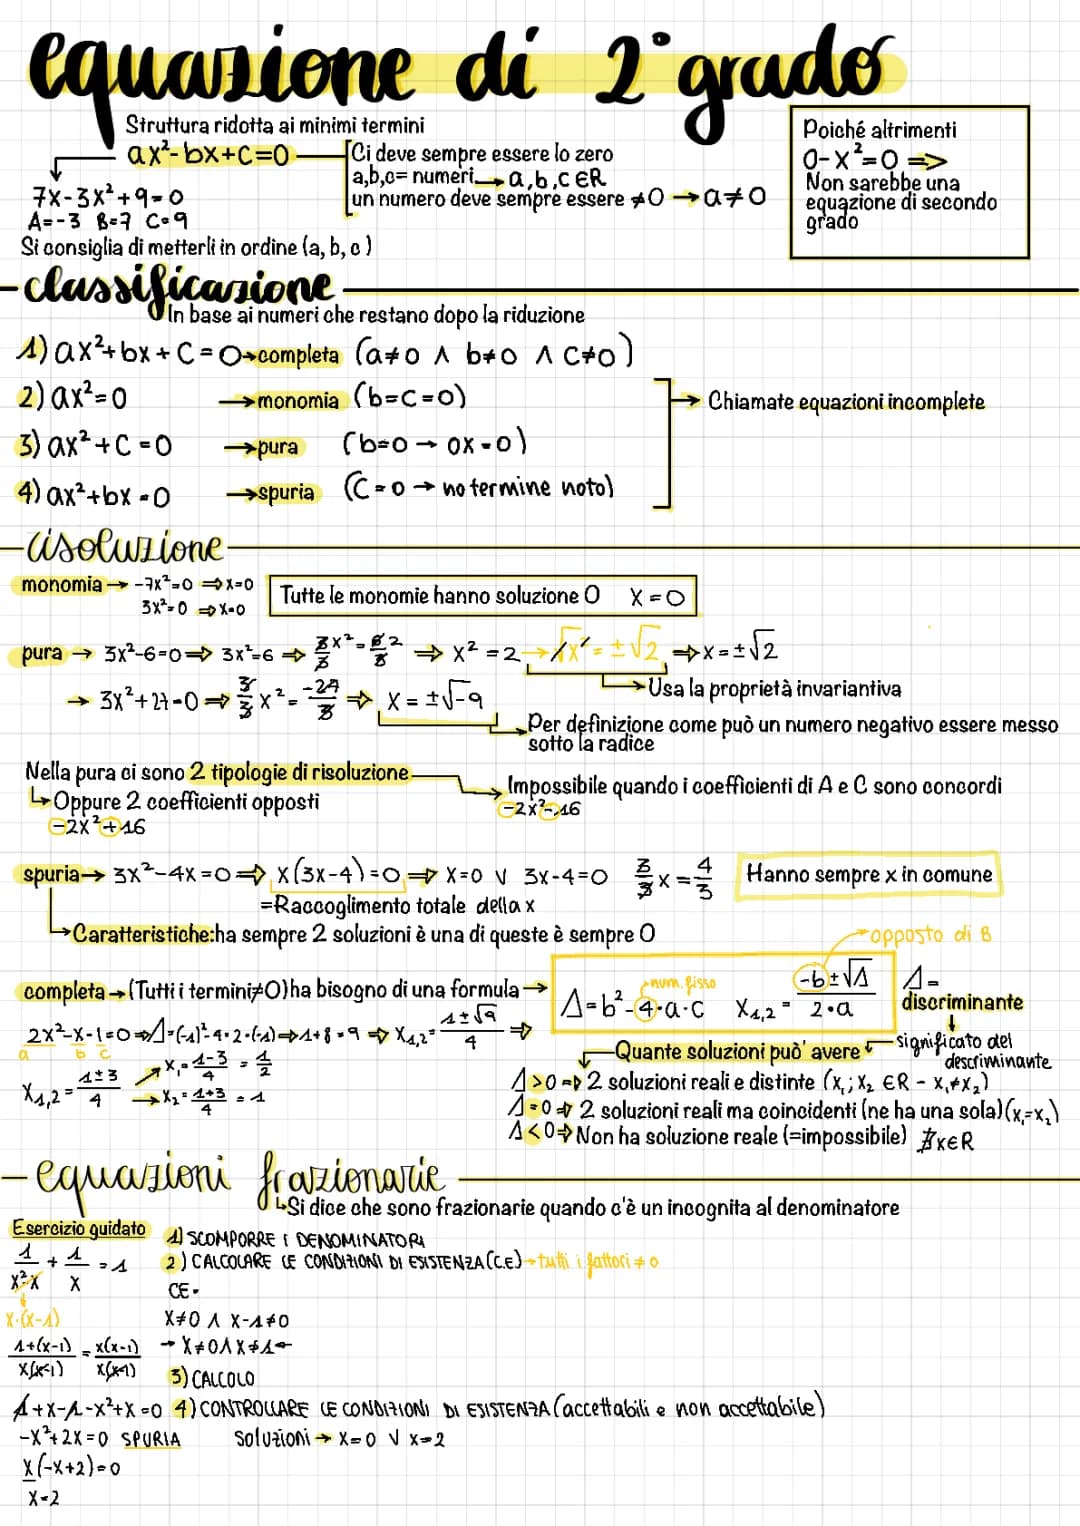 equazione di 2° grado
Struttura ridotta ai minimi termini
ax²-bx+c=0
Ci deve sempre essere lo zero
a,b,c= numeri → a,b,c ∈R
un numero deve sempre essere ≠0 → a≠0
Poiché altrimenti
0-x²=0 =>
Non sarebbe una
equazione di secondo
grado
7x-3x²+9=0
A=-3 B=7 C=9
Si consiglia di metterli in ordine (a, b, c)
-classificazione
In base ai numeri che restano dopo la riduzione
1) ax²+bx+C=0→completa (a≠0 ∧ b≠0 ∧ C≠0)
2) ax²=0 →monomia (b=c=0)
3) ax²+C=0 →pura (b=0 → 0x=0)
4) ax²+bx=0 →spuria (C=0 → no termine noto)
→ Chiamate equazioni incomplete
-risoluzione
monomia → -7x²=0 ⇒x=0
3x²=0 ⇒x=0
Tutte le monomie hanno soluzione 0 X=0
pura → 3x²-6=0⇒ 3x²=6 ⇒ 3/3 x²= 6/3 2 ⇒ x²=2 → √x²=±√2 ⇒x=±√2
→Usa la proprietà invariantiva
→ 3x²+27=0⇒ 3/3 x²= -27/3 ⇒ x=±√-9
Per definizione come può un numero negativo essere messo
sotto la radice
Nella pura ci sono 2 tipologie di risoluzione
Impossibile quando i coefficienti di A e C sono concordi
-2x²-16
↳Oppure 2 coefficienti opposti
-2x²+16
spuria→ 3x²-4x=0⇒ x(3x-4)=0 ⇒ x=0 ∨ 3x-4=0 3/3 x=4/3
Hanno sempre x in comune
=Raccoglimento totale della x
→Caratteristiche:ha sempre 2 soluzioni è una di queste è sempre 0
completa→(Tutti i termini≠0)ha bisogno di una formula→
Δ=b²-4·a·c X1,2= -b±√Δ / 2·a
num. fisso
opposto di B
Δ=
discriminante
significato del
descriminante
2x²-x-1=0⇒Δ=(-1)²-4·2·(-1)⇒1+8=9 ⇒ X1,2= 1±√9 / 4 ⇒
a b c
X1,2= 1±3 / 4 → x₁= 1-3 / 4 = 1/2
→ x₂= 1+3 / 4 = 1
Quante soluzioni può' avere
Δ>0⇒ 2 soluzioni reali e distinte (x₁;x₂ ∈R - x₁≠x₂)
Δ=0⇒ 2 soluzioni reali ma coincidenti (ne ha una sola)(x₁=x₂)
Δ<0⇒ Non ha soluzione reale (=impossibile) ∄x∈R
-equazioni frazionarie
↳Si dice che sono frazionarie quando c'è un incognita al denominatore
Esercizio guidato
1/x²-x + 1/x = 1
x·(x-1)
1+(x-1) / x(x-1) = x(x-1) / x(x-1)
1+x-1-x²+x=0
-x²+2x=0 SPURIA
x(-x+2)=0
x=2
1) SCOMPORRE I DENOMINATORI
2) CALCOLARE LE CONDIZIONI DI ESISTENZA(C.E)→tutti i fattori ≠0
CE=
X≠0 ∧ X-1≠0
→ X≠0∧X≠1←
3) CALCOLO
4) CONTROLLARE LE CONDIZIONI DI ESISTENZA (accettabili e non accettabile)
Soluzioni → X=0 ∨ x=2